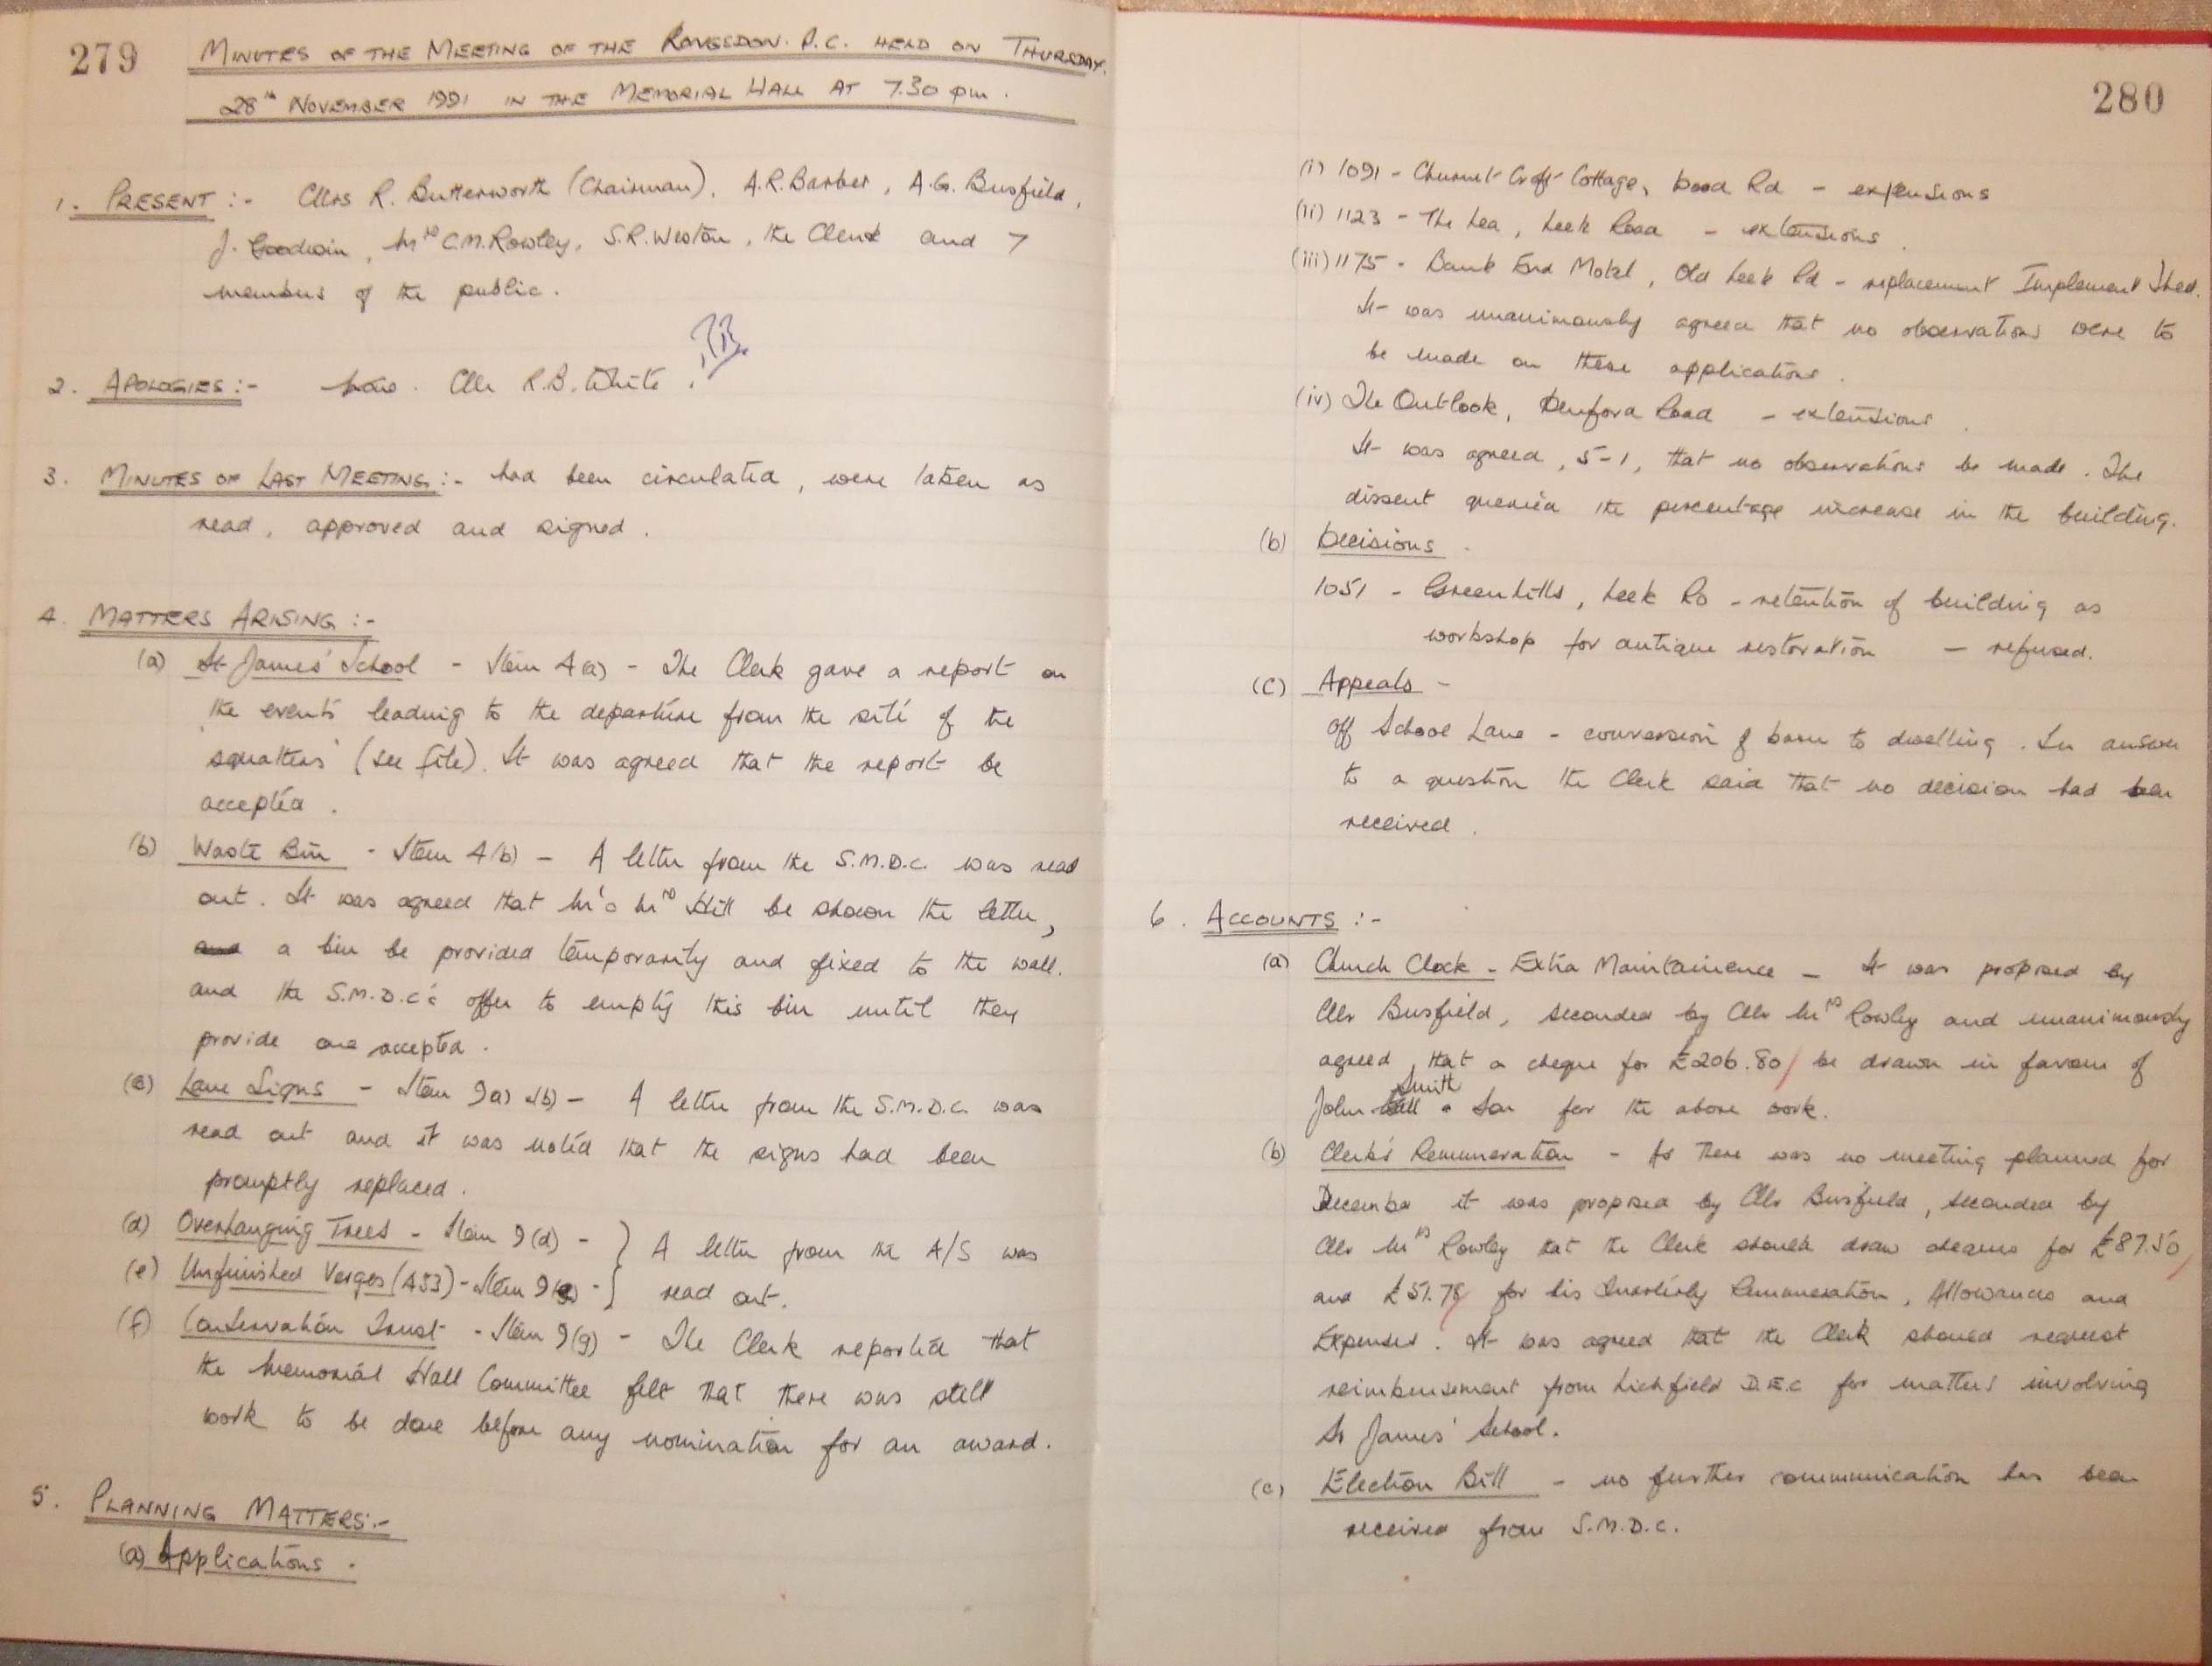 279
MINUTES OF THE MEETING OF THE LONGSDON P.C. HELD ON THURSDAY.
28th NOVEMBER 1991 IN THE MEMORIAL HALL AT 7.30 pm.
1. PRESENT :- Cllrs R. Butterworth (Chairman), A.R. Barber, A.G. Busfield,
J. Goodwin, Mrs C.M. Rowley, S.R. Weston, the Clerk and 7
members of the public.
2. APOLOGIES :- Cllr R.B. White.
3. MINUTES OF LAST MEETING :- had been circulated, were taken as
read, approved and signed.
4. MATTERS ARISING :-
(a) St James' School - Item 4(a) - The Clerk gave a report on
the events leading to the departure from the site of the
'squatters' (see file). It was agreed that the report be
accepted.
(b) Waste Bin - Item 4(b) - A letter from the S.M.D.C. was read
out. It was agreed that Mr & Mrs Hill be shown the letter,
and a bin be provided temporarily and fixed to the wall.
and the S.M.D.C's offer to empty this bin until they
provide one accepted.
(c) Lane Signs - Item 9(a) & (b) - A letter from the S.M.D.C. was
read out and it was noted that the signs had been
promptly replaced.
(d) Overhanging Trees - Item 9(d) - } A letter from the A/S was
(e) Unfinished Verges (A53) - Item 9(e) - } read out.
(f) Conservation Trust - Item 9(g) - The Clerk reported that
the Memorial Hall Committee felt that there was still
work to be done before any nomination for an award.
5. PLANNING MATTERS :-
(a) Applications -
280
(i) 1091 - Churnet Croft Cottage, Dood Rd - extensions
(ii) 1123 - The Lea, Leek Road - extensions.
(iii) 1175 - Bank End Motel, Old Leek Rd - replacement Implement Shed.
It was unanimously agreed that no observations were to
be made on these applications.
(iv) The Outlook, Denford Road - extensions.
It was agreed, 5-1, that no observations be made. The
dissent queried the percentage increase in the building.
(b) Decisions -
1051 - Greenhills, Leek Rd - retention of building as
workshop for antique restoration - refused.
(c) Appeals -
off School Lane - conversion of barn to dwelling. In answer
to a question the Clerk said that no decision had been
received.
6. ACCOUNTS :-
(a) Church Clock - Extra Maintainence - It was proposed by
Cllr Busfield, seconded by Cllr Mrs Rowley and unanimously
agreed, that a cheque for £206.80 be drawn in favour of
John Smith & Son for the above work.
(b) Clerk's Remuneration - As there was no meeting planned for
December it was proposed by Cllr Busfield, seconded by
Cllr Mrs Rowley that the Clerk should draw cheques for £87.50
and £51.78 for his Quarterly Remuneration, Allowances and
Expenses. It was agreed that the Clerk should request
reimbursement from Lichfield D.E.C for matters involving
St James' School.
(c) Election Bill - no further communication has been
received from S.M.D.C.